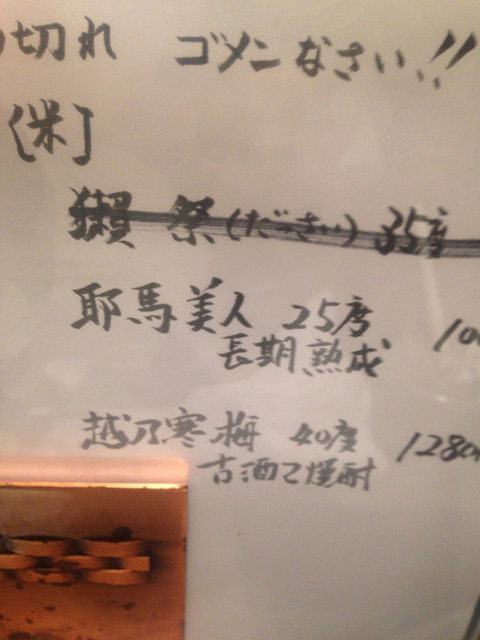 切れ ゴメンなさい!!
[米]
獺祭(だっさい) 35度
耶馬美人 25度
長期熟成
越乃寒梅 40度 1280
古酒乙焼酎